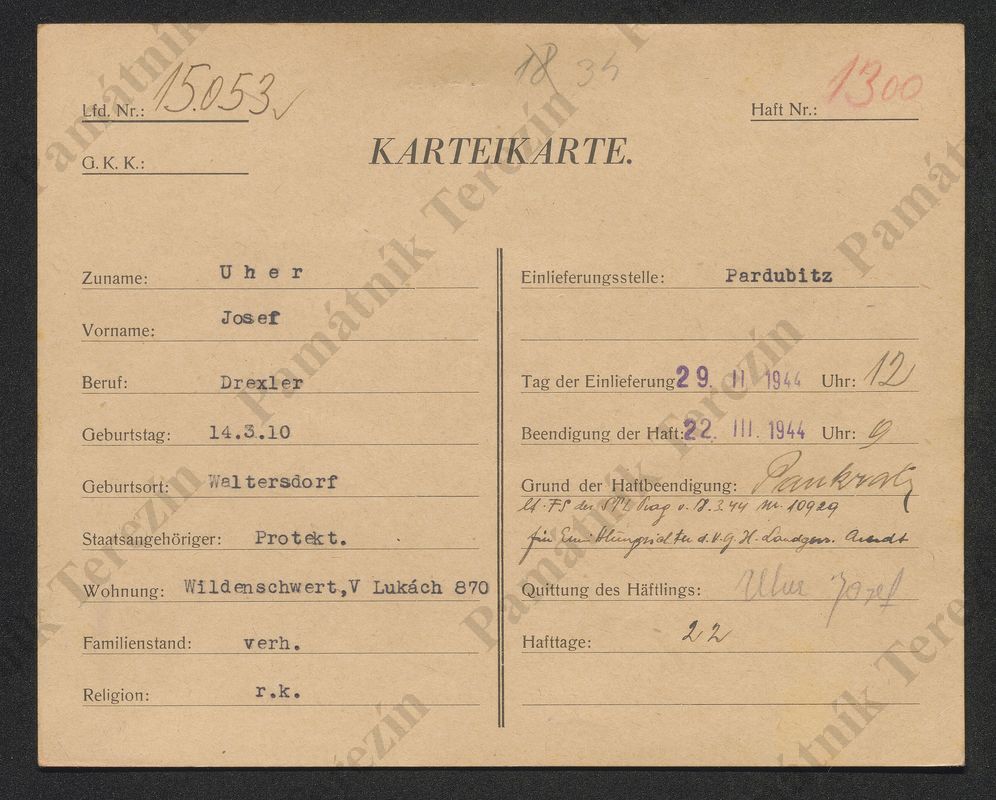 18 34
Lfd. Nr.: 15.053
Haft Nr.: 1300
G. K. K.:
KARTEIKARTE.
Zuname: Uher
Vorname: Josef
Beruf: Drexler
Geburtstag: 14.3.10
Geburtsort: Waltersdorf
Staatsangehöriger: Protekt.
Wohnung: Wildenschwert,V Lukách 870
Familienstand: verh.
Religion: r.k.
Einlieferungsstelle: Pardubitz
Tag der Einlieferung 29. II 1944 Uhr: 12
Beendigung der Haft: 22. III. 1944 Uhr: 9
Grund der Haftbeendigung: Pankratz
lt. FS der STL Prag v. 3.44 Nr. 10929
für Ermittlungsrichter d. V. G. H. Landger. Arndt
Quittung des Häftlings: Uher Josef
Hafttage: 22
Památník Terezín